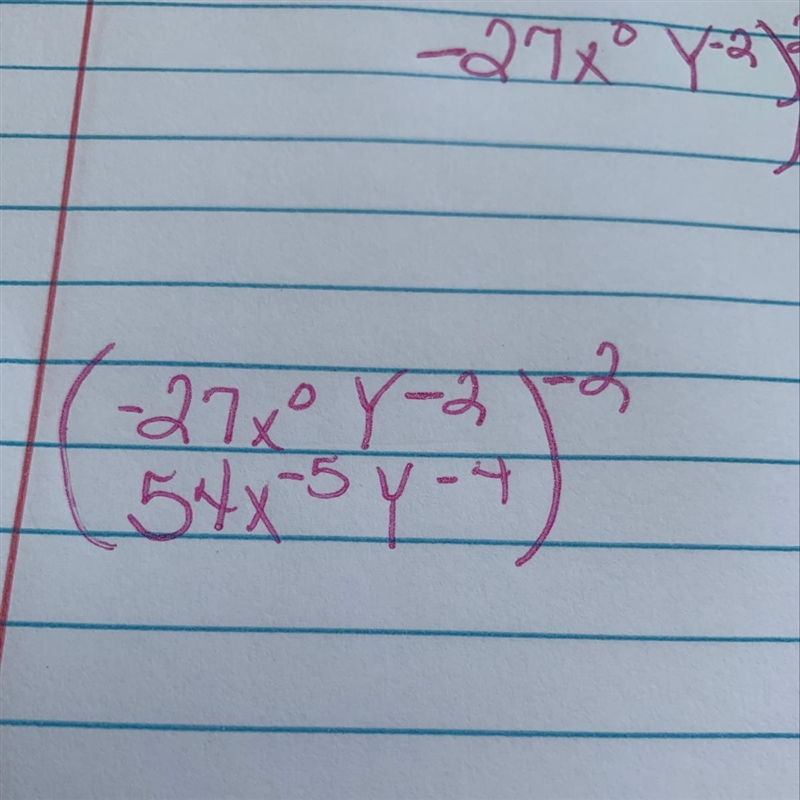 -27x⁰ y⁻²)
(-27x⁰ y⁻²)⁻²
54x⁻⁵ y⁻⁴